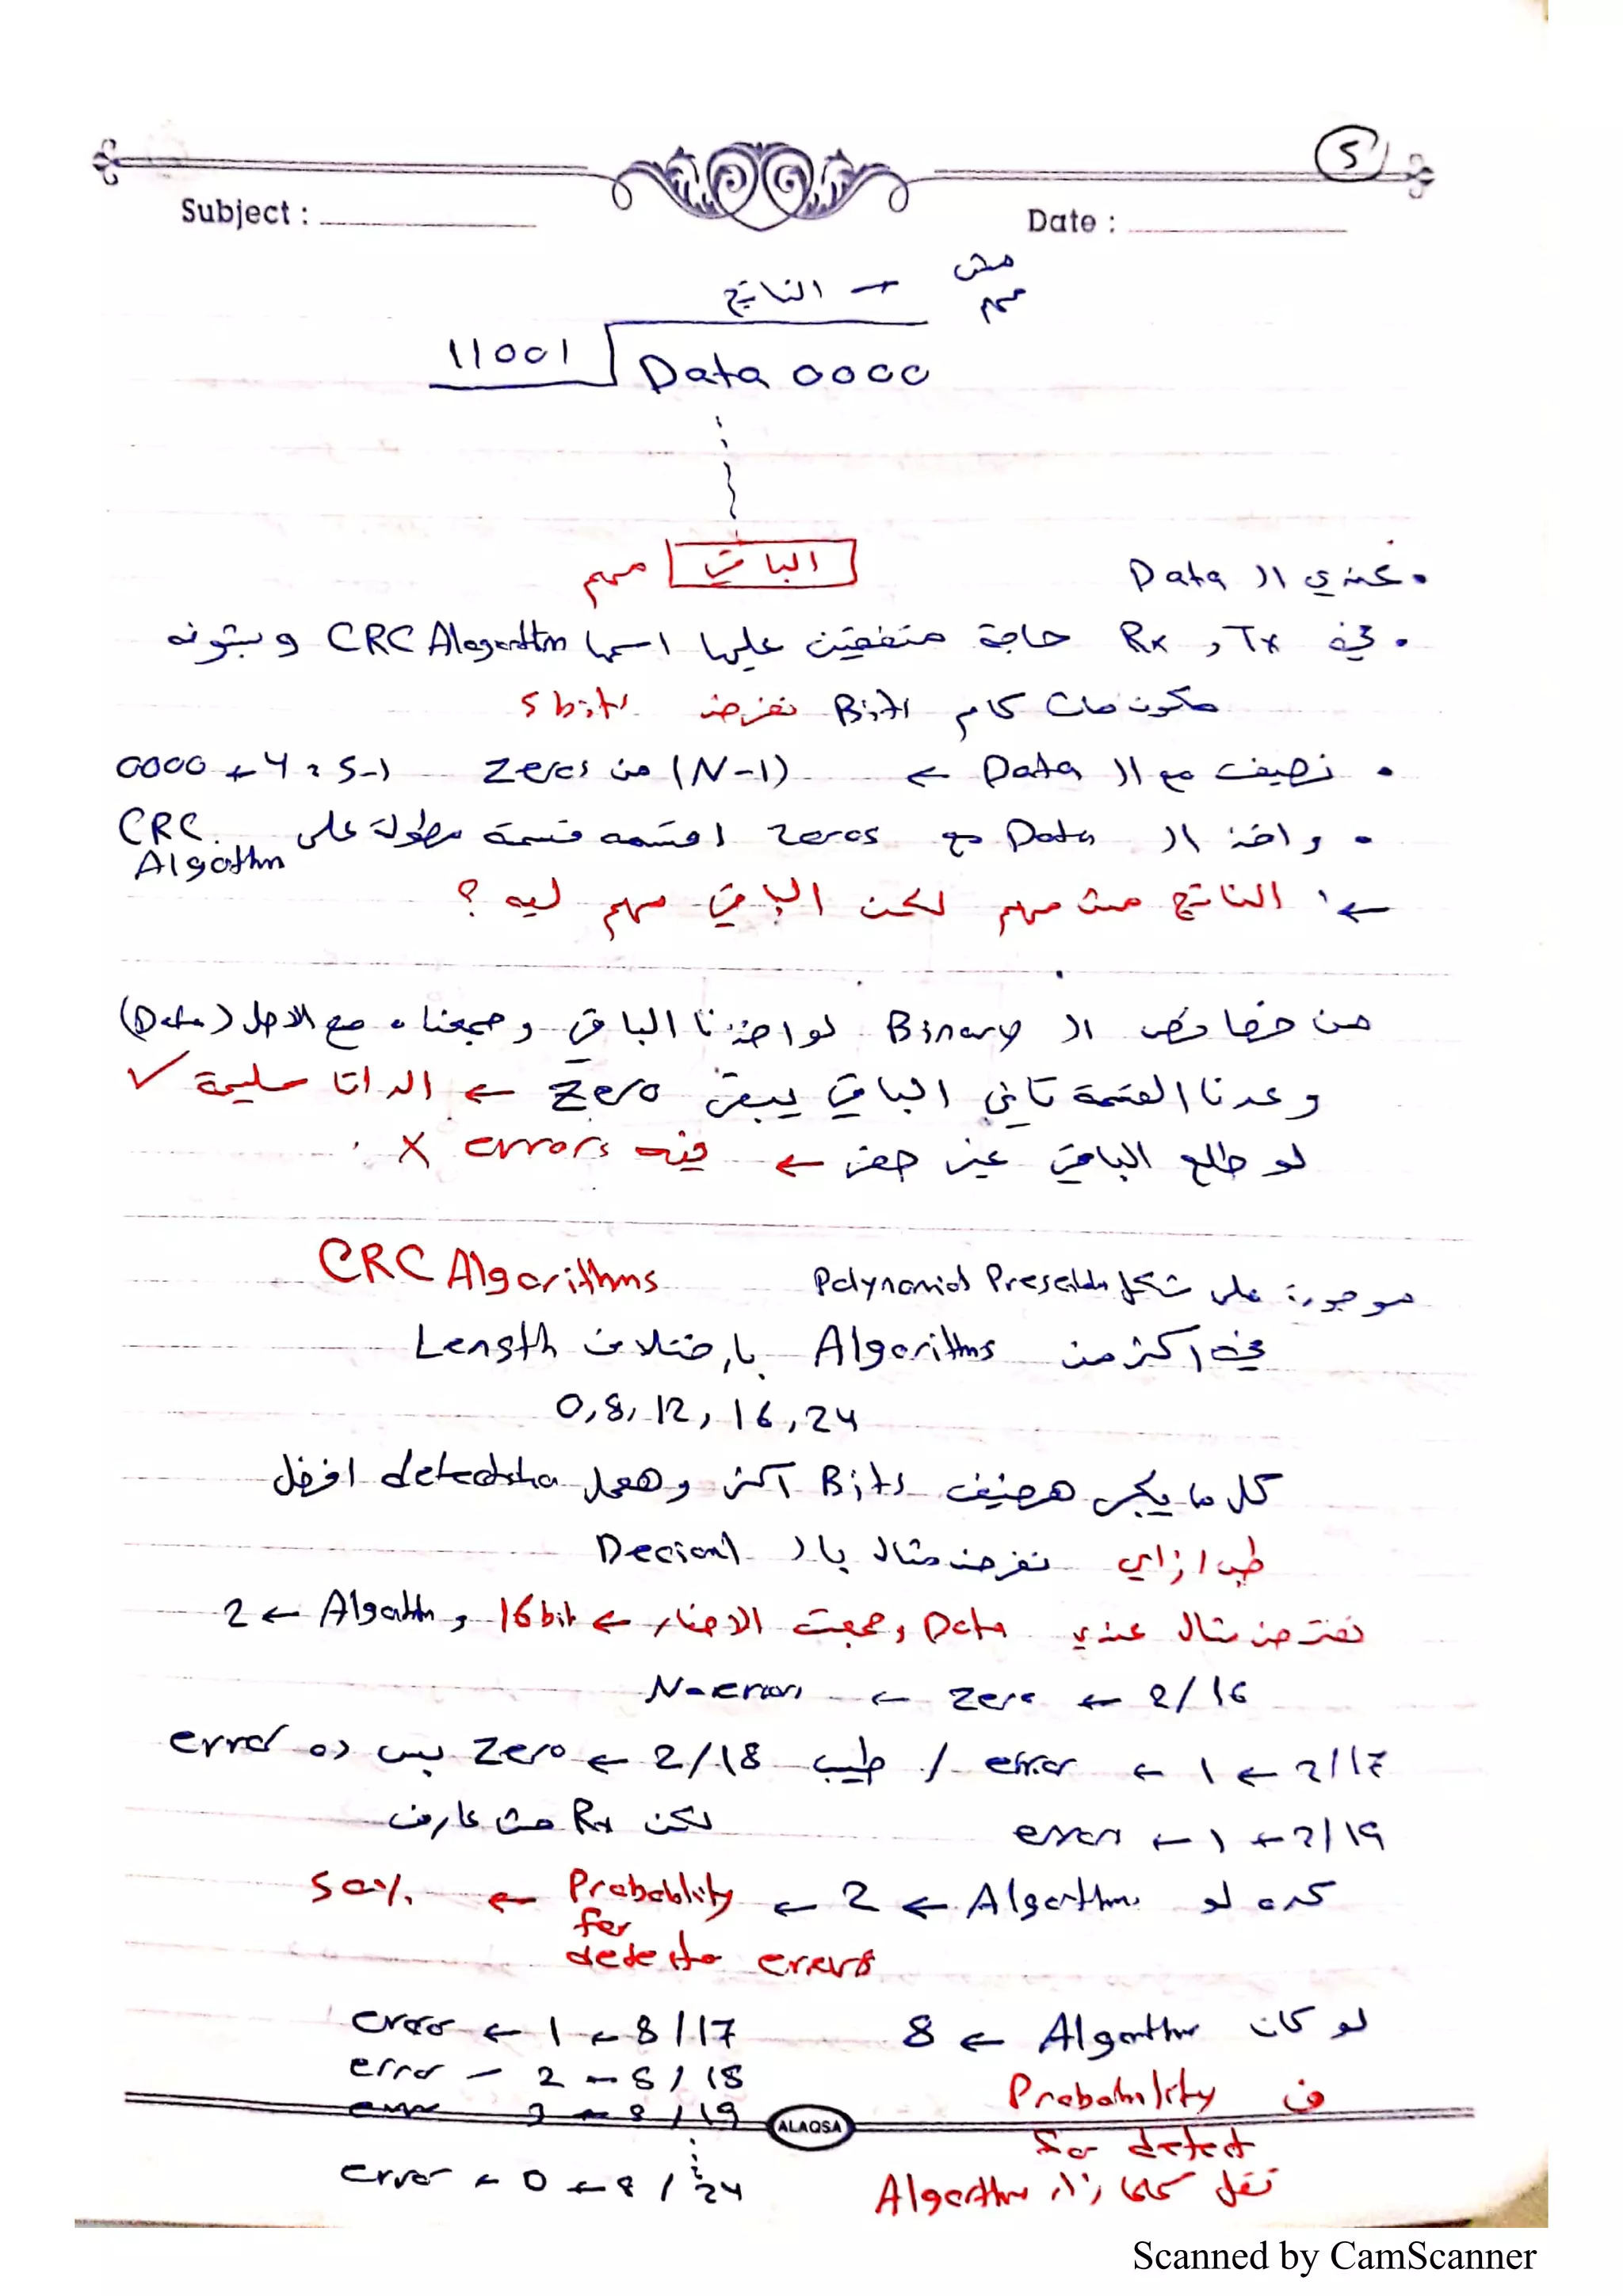 5
Subject :
Date :
الناتج ← مش مهم
11001 Data 0000
الباقي مهم
• عندي ال Data
• في Tx و Rx حاجة متفقين عليها اسمها CRC Alogorithm و بتكون
مكونة من كام Bits نفرض 5 bits
• نضيف مع ال Data ← (N-1) من zeros 5-1 = 4 → 0000
• و اخد ال Data مع zeros اقسمه قسمة مطولة على CRC
Algorithm
← الناتج مش مهم لكن الباقي مهم ليه ؟
من خصائص ال Binary لو اخدنا الباقي و جمعناه مع الاصل (Data)
و عدنا القسمة تاني الباقي يبقى Zero ← الداتا سليمة ✓
لو طلع الباقي غير صفر ← فيه errors X
CRC Algorithms
موجودة على شكل Polynomial
في اكثر من Algorithms باختلاف Length
0, 8, 12, 16, 24
كل ما يكبر هضيف Bits اكثر و هعمل detection افضل
طب ازاي نفرض مثال بال Decimal
نفترض مثال عندي Data و جمعت الاصفار ← 16 bit و Algorithm ← 2
2/16 ← zero ← No errors
2/17 ← 1 ← error / طيب 2/18 ← zero بس ده error
لكن Rx مش عارف
2/19 ← 1 ← error
كده لو Algorithm ← 2 ← Probablity for detecte errors ← 50%
لو كان Algorithm ← 8
8/17 ← 1 ← error
8/18 – 2 – error
8/19 – 3 – error
ف Probability
for detect
تقل كلما زاد Algorithm
8/24 ← 0 ← error
ALAQSA
Scanned by CamScanner